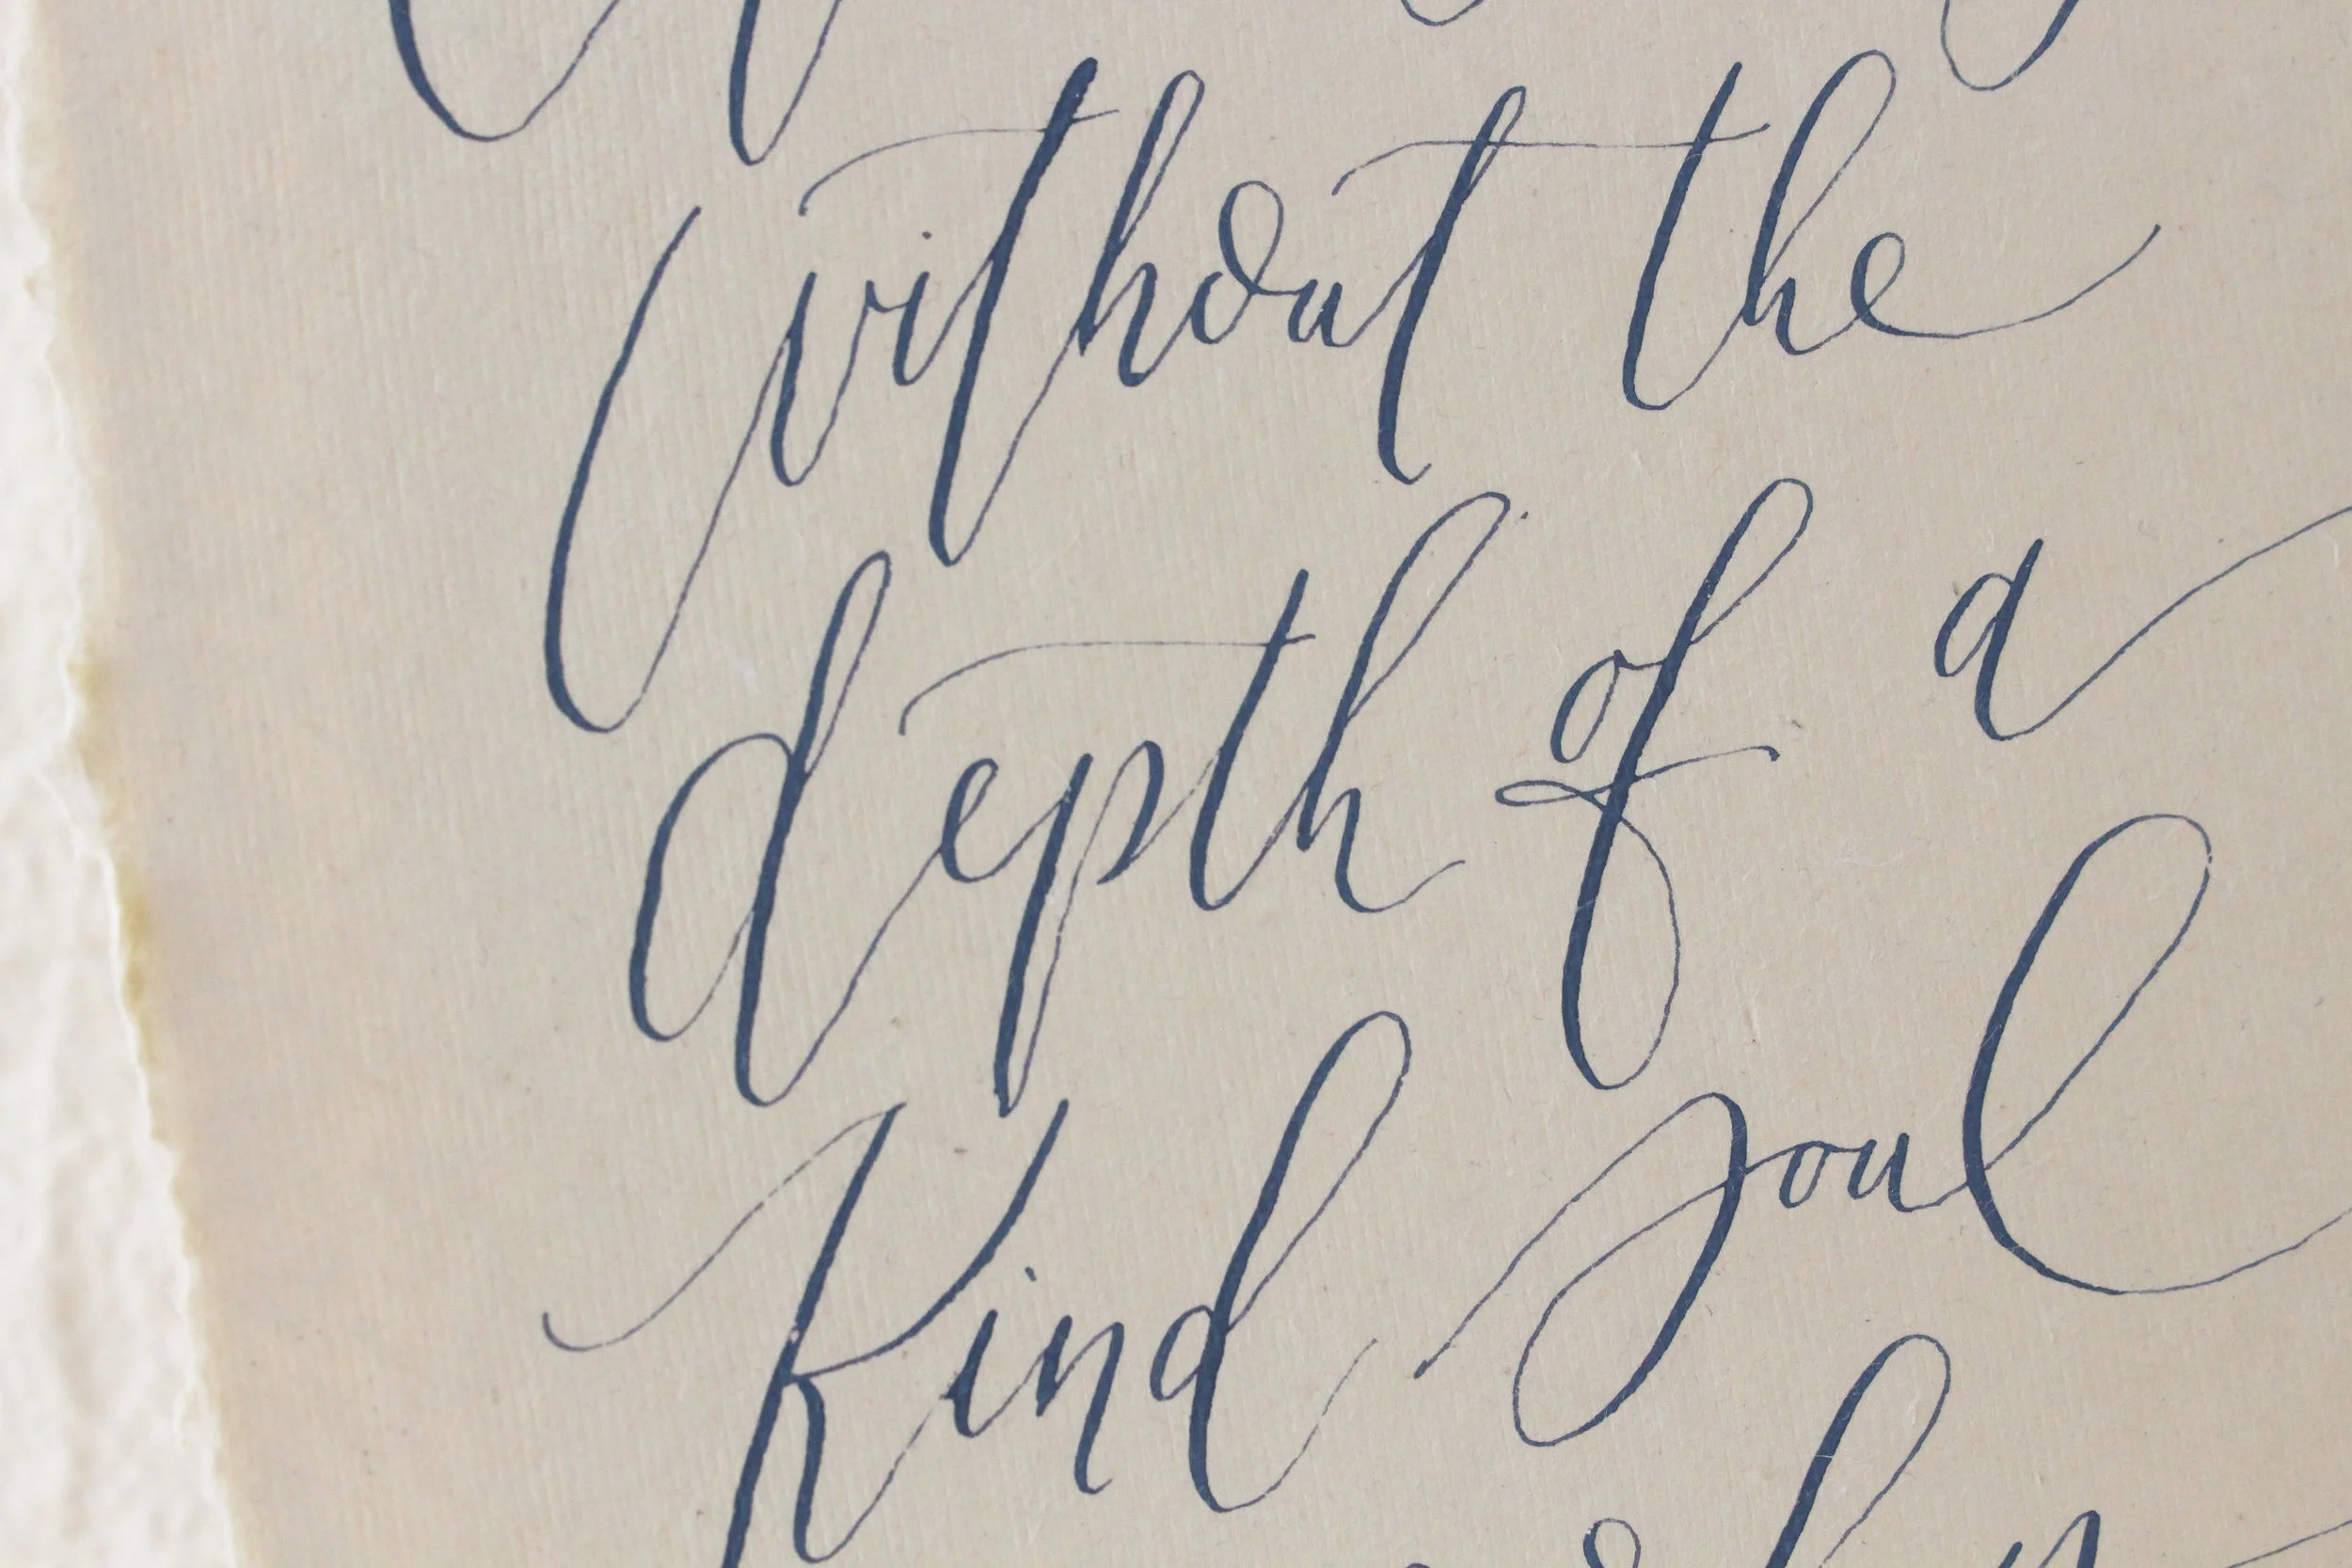 without the
depth of a
kind soul